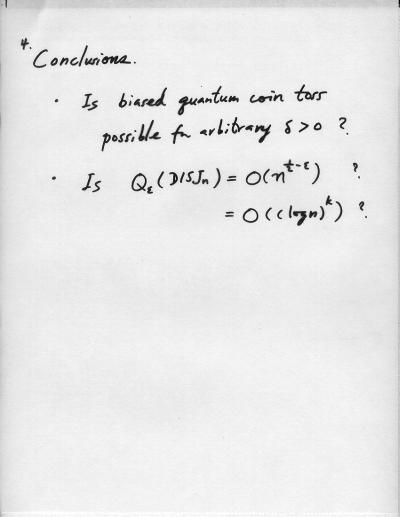 4.
Conclusions.
· Is biased quantum coin toss
possible for arbitrary δ > 0 ?
· Is Qε(DISJn) = O(n^{1/2-ε}) ?
= O((log n)^k) ?